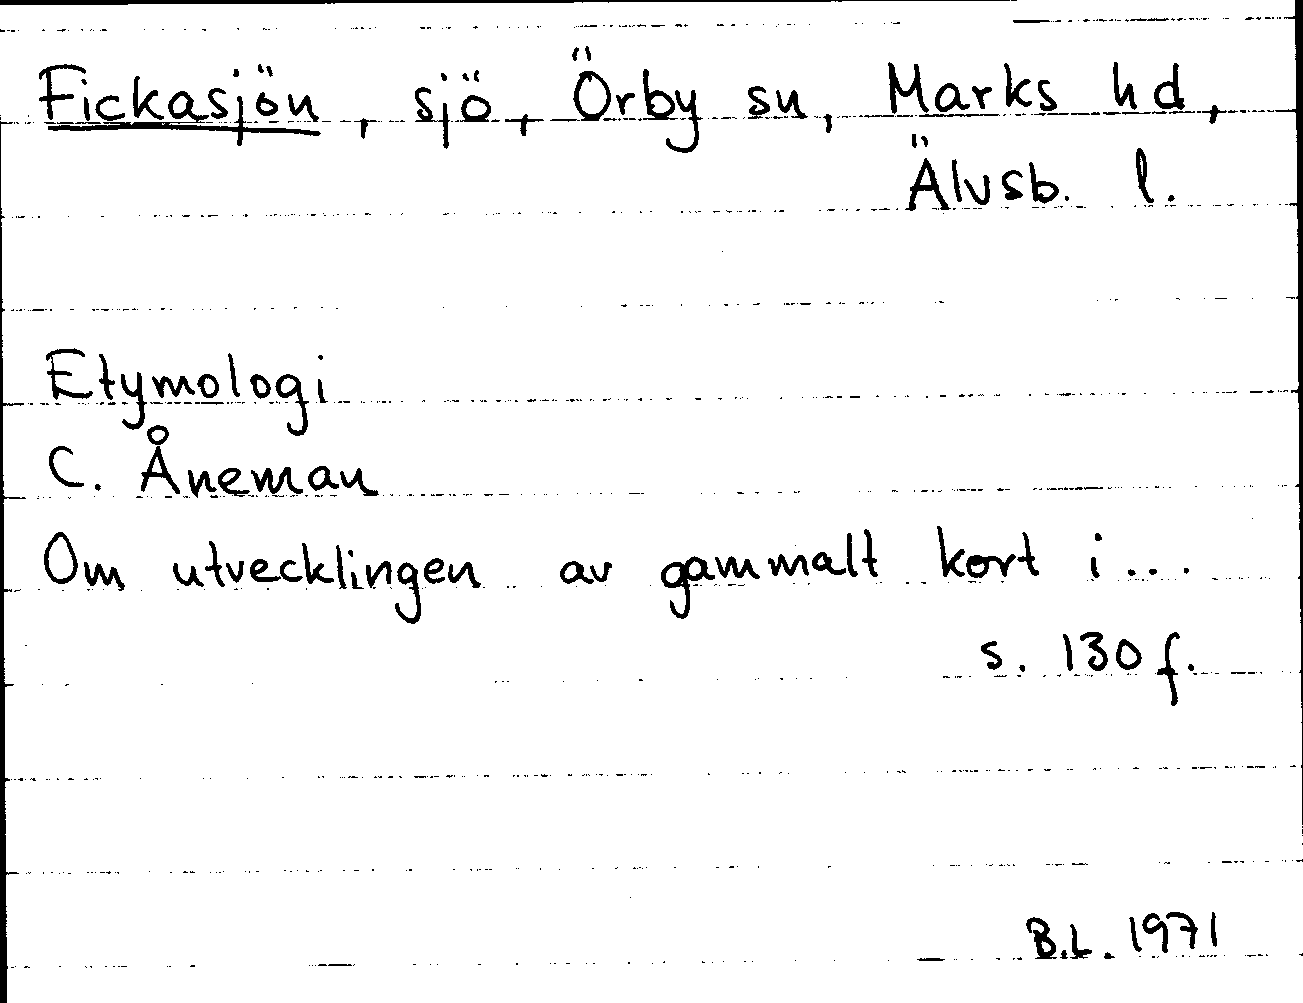 Fickasjön, sjö, Örby sn, Marks hd,
Älvsb. l.
Etymologi
C. Åneman
Om utvecklingen av gammalt kort i...
s. 130 f.
B.L. 1971